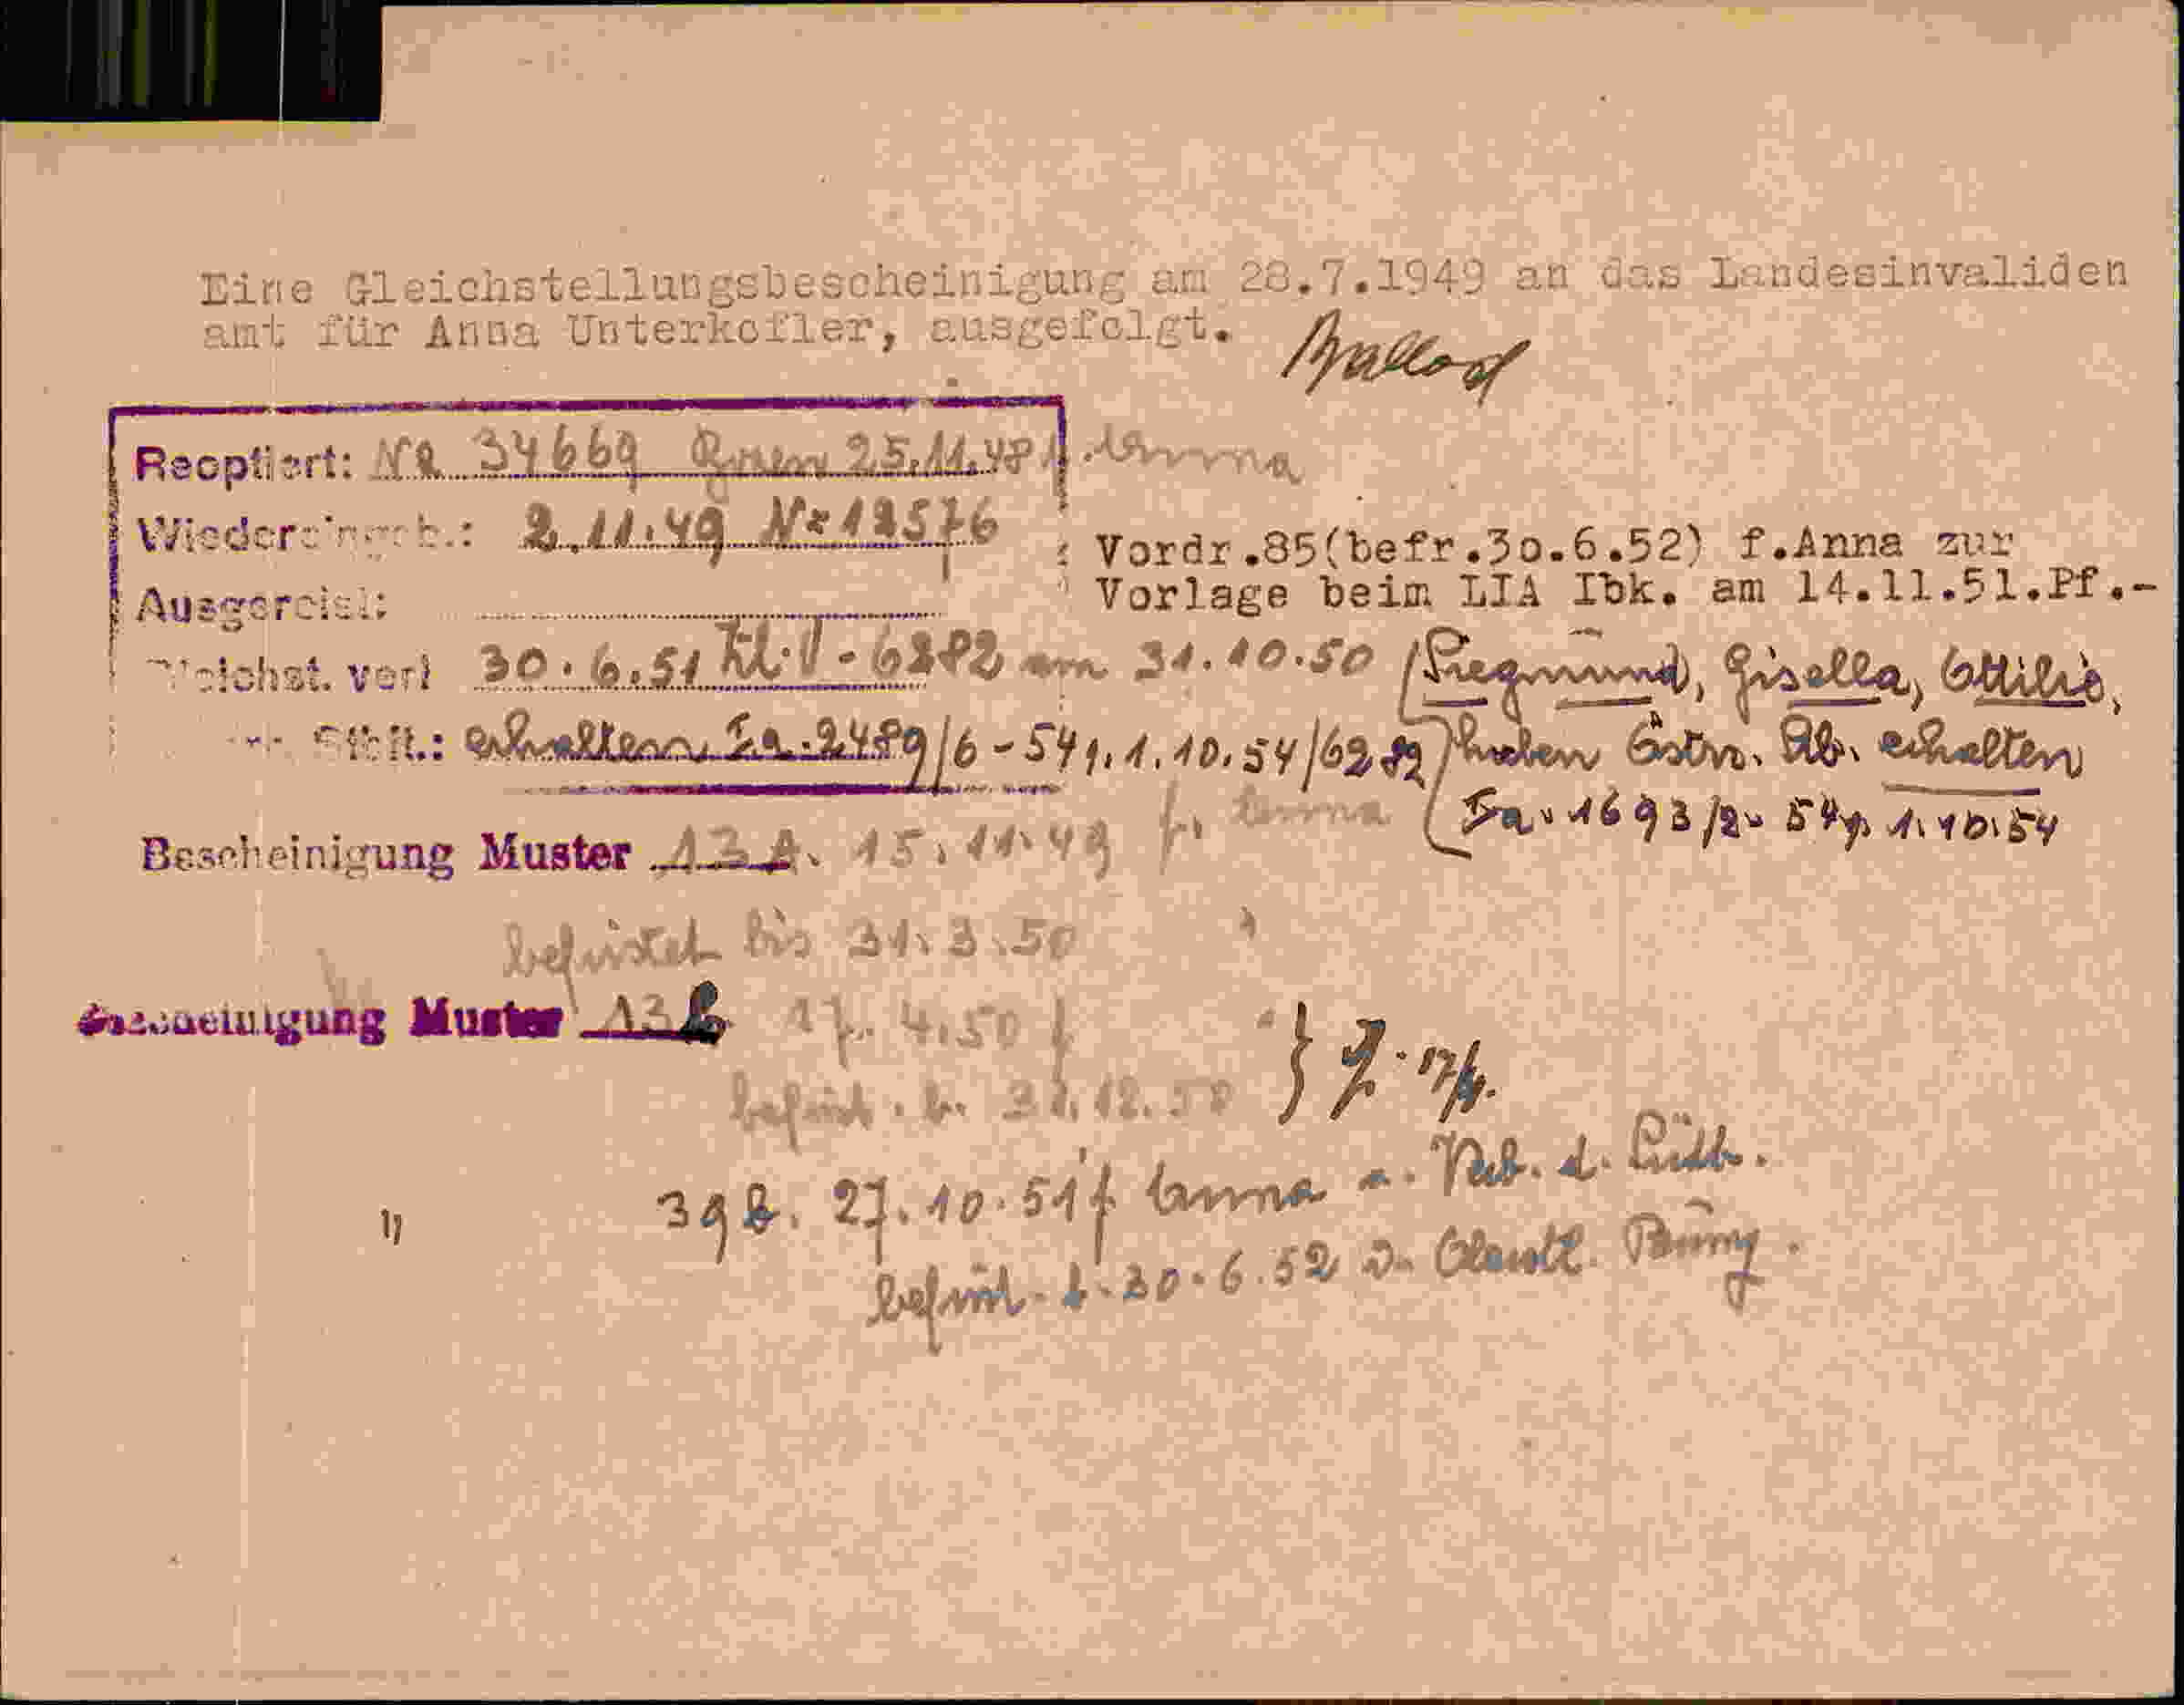 Eine Gleichstellungsbescheinigung am 28.7.1949 an das Landesinvaliden
amt für Anna Unterkofler, ausgefolgt.
Reoptiert: NR 34669 25.11.48 f. Anna
Wiedereingeb.: 2.11.49 Nr 12576
Vordr.85(befr.3o.6.52) f.Anna zur
Ausgereist:
Vorlage beim LIA Ibk. am 14.11.51.Pf.-
Gleichst. verl 30.6.51 am 31.10.50 (Siegmund, Gisella, Ottilie,
erhalten Ia-2489/6-54 v. 1.10.54/6282) haben Östr. Stb. erhalten
Ia-1693/2-54 v. 1.10.54
Bescheinigung Muster 13A. 15.11.49 f. Anna
befristet bis 31.3.50
Bescheinigung Muster 13B 17.4.50 f
befrist. b. 31.12.50
39B. 27.10.51 f Anna
befrist. b. 30.6.52